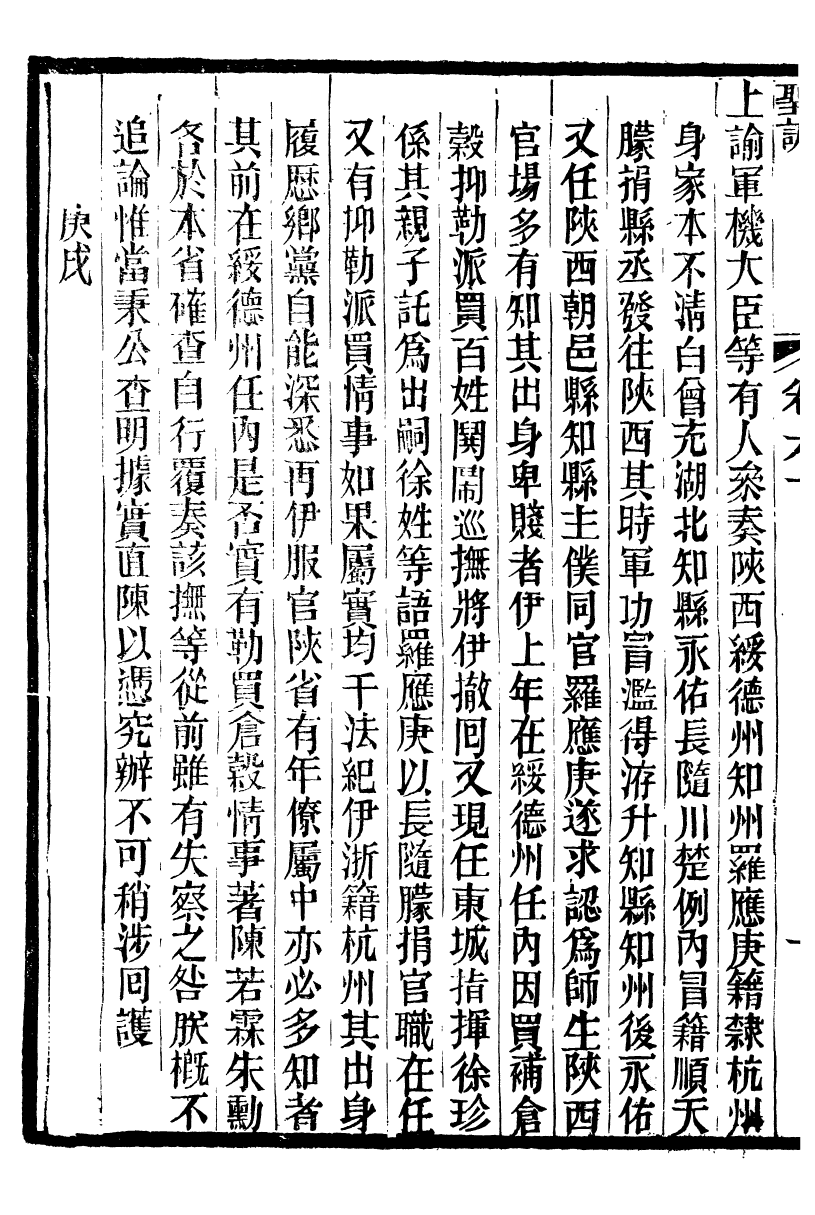 聖訓 卷六十 一
上諭軍機大臣等有人叅奏陜西綏德州知州羅應庚籍隸杭州
身家本不淸白曾充湖北知縣永佑長隨川楚例內冒籍順天
朦捐縣丞發往陜西其時軍功冒濫得洊升知縣知州後永佑
又任陜西朝邑縣知縣主僕同官羅應庚遂求認爲師生陜西
官場多有知其出身卑賤者伊上年在綏德州任內因買補倉
榖抑勒派買百姓鬨鬧巡撫將伊撤回又現任東城指揮徐珍
係其親子託爲出嗣徐姓等語羅應庚以長隨朦捐官職在任
又有抑勒派買情事如果屬實均干法紀伊浙籍杭州其出身
履歷鄉黨自能深悉再伊服官陜省有年僚屬中亦必多知者
其前在綏德州任內是否實有勒買倉榖情事著陳若霖朱勳
各於本省確查自行覆奏該撫等從前雖有失察之咎朕槪不
追論惟當秉公查明據實直陳以憑究辦不可稍涉回護
庚戌